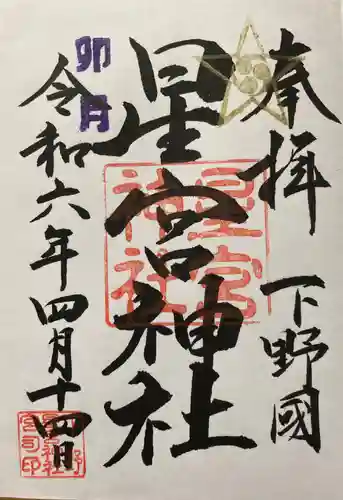 奉拝
下野國
星宮神社
星宮
神社
卯月
令和六年四月十四日